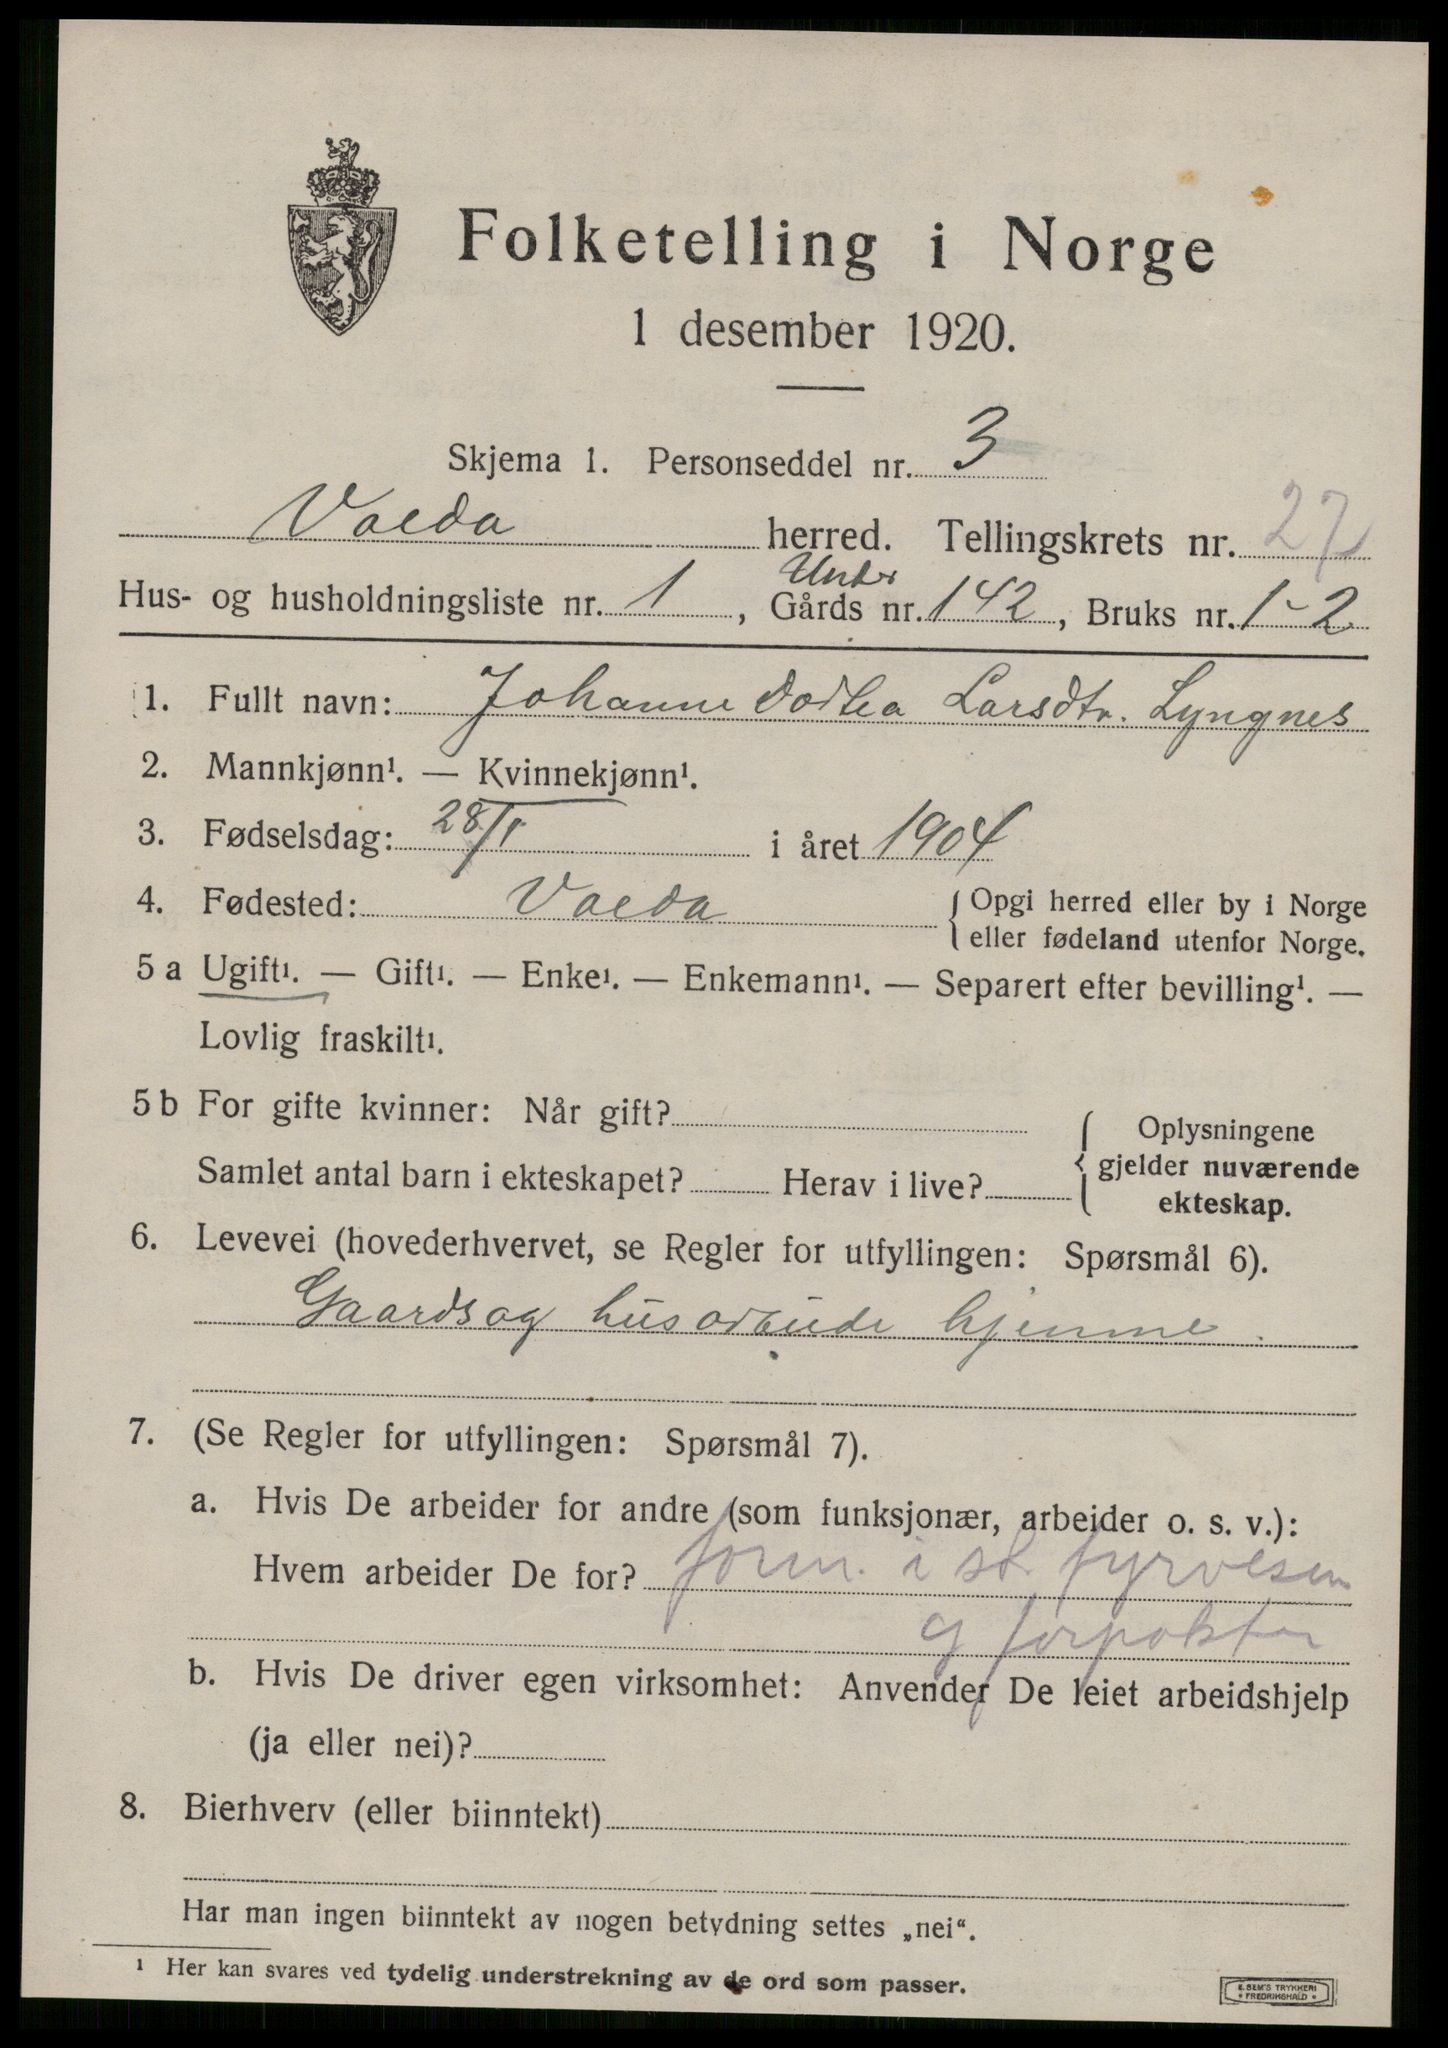 Folketelling i Norge
1 desember 1920.
Skjema 1. Personseddel nr. 3
Voeda herred. Tellingskrets nr. 27
Under
Hus- og husholdningsliste nr. 1, Gårds nr. 142, Bruks nr. 1-2
1. Fullt navn: Johanne Dorthea Larsdtr. Lyngnes
2. Mannkjønn¹. — Kvinnekjønn¹.
3. Fødselsdag: 28/1 i året 1904
4. Fødested: Voeda { Opgi herred eller by i Norge
eller fødeland utenfor Norge.
5 a Ugift¹. — Gift¹. — Enke¹. — Enkemann¹. — Separert efter bevilling¹. —
Lovlig fraskilt¹.
5 b For gifte kvinner: Når gift? { Oplysningene
gjelder nuværende
Samlet antal barn i ekteskapet? Herav i live? ekteskap.
6. Levevei (hovederhvervet, se Regler for utfyllingen: Spørsmål 6).
Gaards og husarbeide hjemme.
7. (Se Regler for utfyllingen: Spørsmål 7).
a. Hvis De arbeider for andre (som funksjonær, arbeider o. s. v.):
Hvem arbeider De for? form. i st. fyrvesen
g forpakter
b. Hvis De driver egen virksomhet: Anvender De leiet arbeidshjelp
(ja eller nei)?
8. Bierhverv (eller biinntekt)
Har man ingen biinntekt av nogen betydning settes „nei“.
¹ Her kan svares ved tydelig understrekning av de ord som passer.
E. SEM'S TRYKKERI
• FREDRIKSHALD •